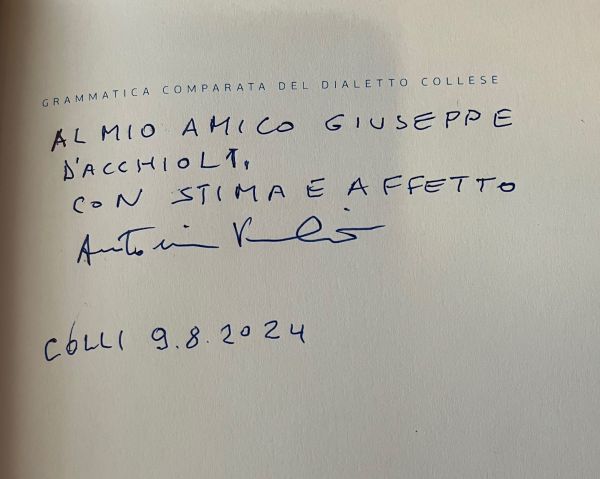 GRAMMATICA COMPARATA DEL DIALETTO COLLESE
AL MIO AMICO GIUSEPPE
D'ACCHIOLI,
CON STIMA E AFFETTO
COLLI 9.8.2024